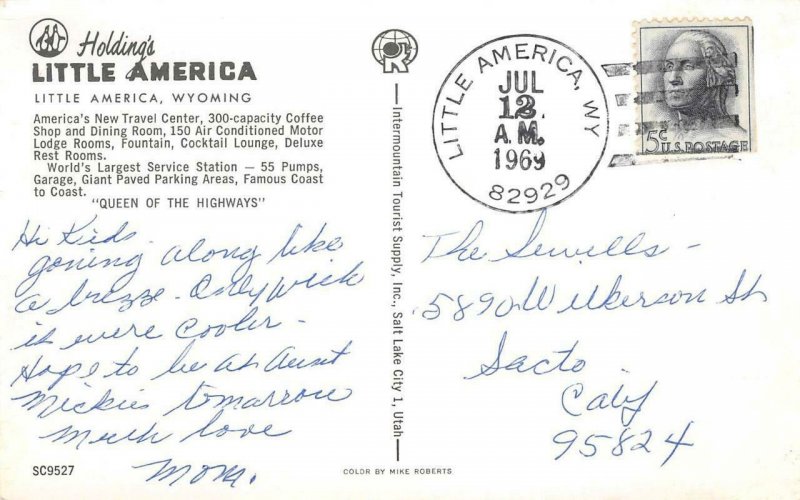 Holding's
LITTLE AMERICA
LITTLE AMERICA, WYOMING
America's New Travel Center, 300-capacity Coffee
Shop and Dining Room, 150 Air Conditioned Motor
Lodge Rooms, Fountain, Cocktail Lounge, Deluxe
Rest Rooms.
World's Largest Service Station — 55 Pumps,
Garage, Giant Paved Parking Areas, Famous Coast
to Coast.
"QUEEN OF THE HIGHWAYS"
Hi Kieds.
goning along like
a brezze. Only wich
it were cooler -
Hope to be at Aunt
Mickies tomarrow
Much love
Mom.
SC9527
Intermountain Tourist Supply, Inc., Salt Lake City 1, Utah
COLOR BY MIKE ROBERTS
LITTLE AMERICA, WY
JUL
A.M.
1969
82929
5c U.S. POSTAGE
The Sewills -
5890 Wilkerson St
Sacto
Calif
95824